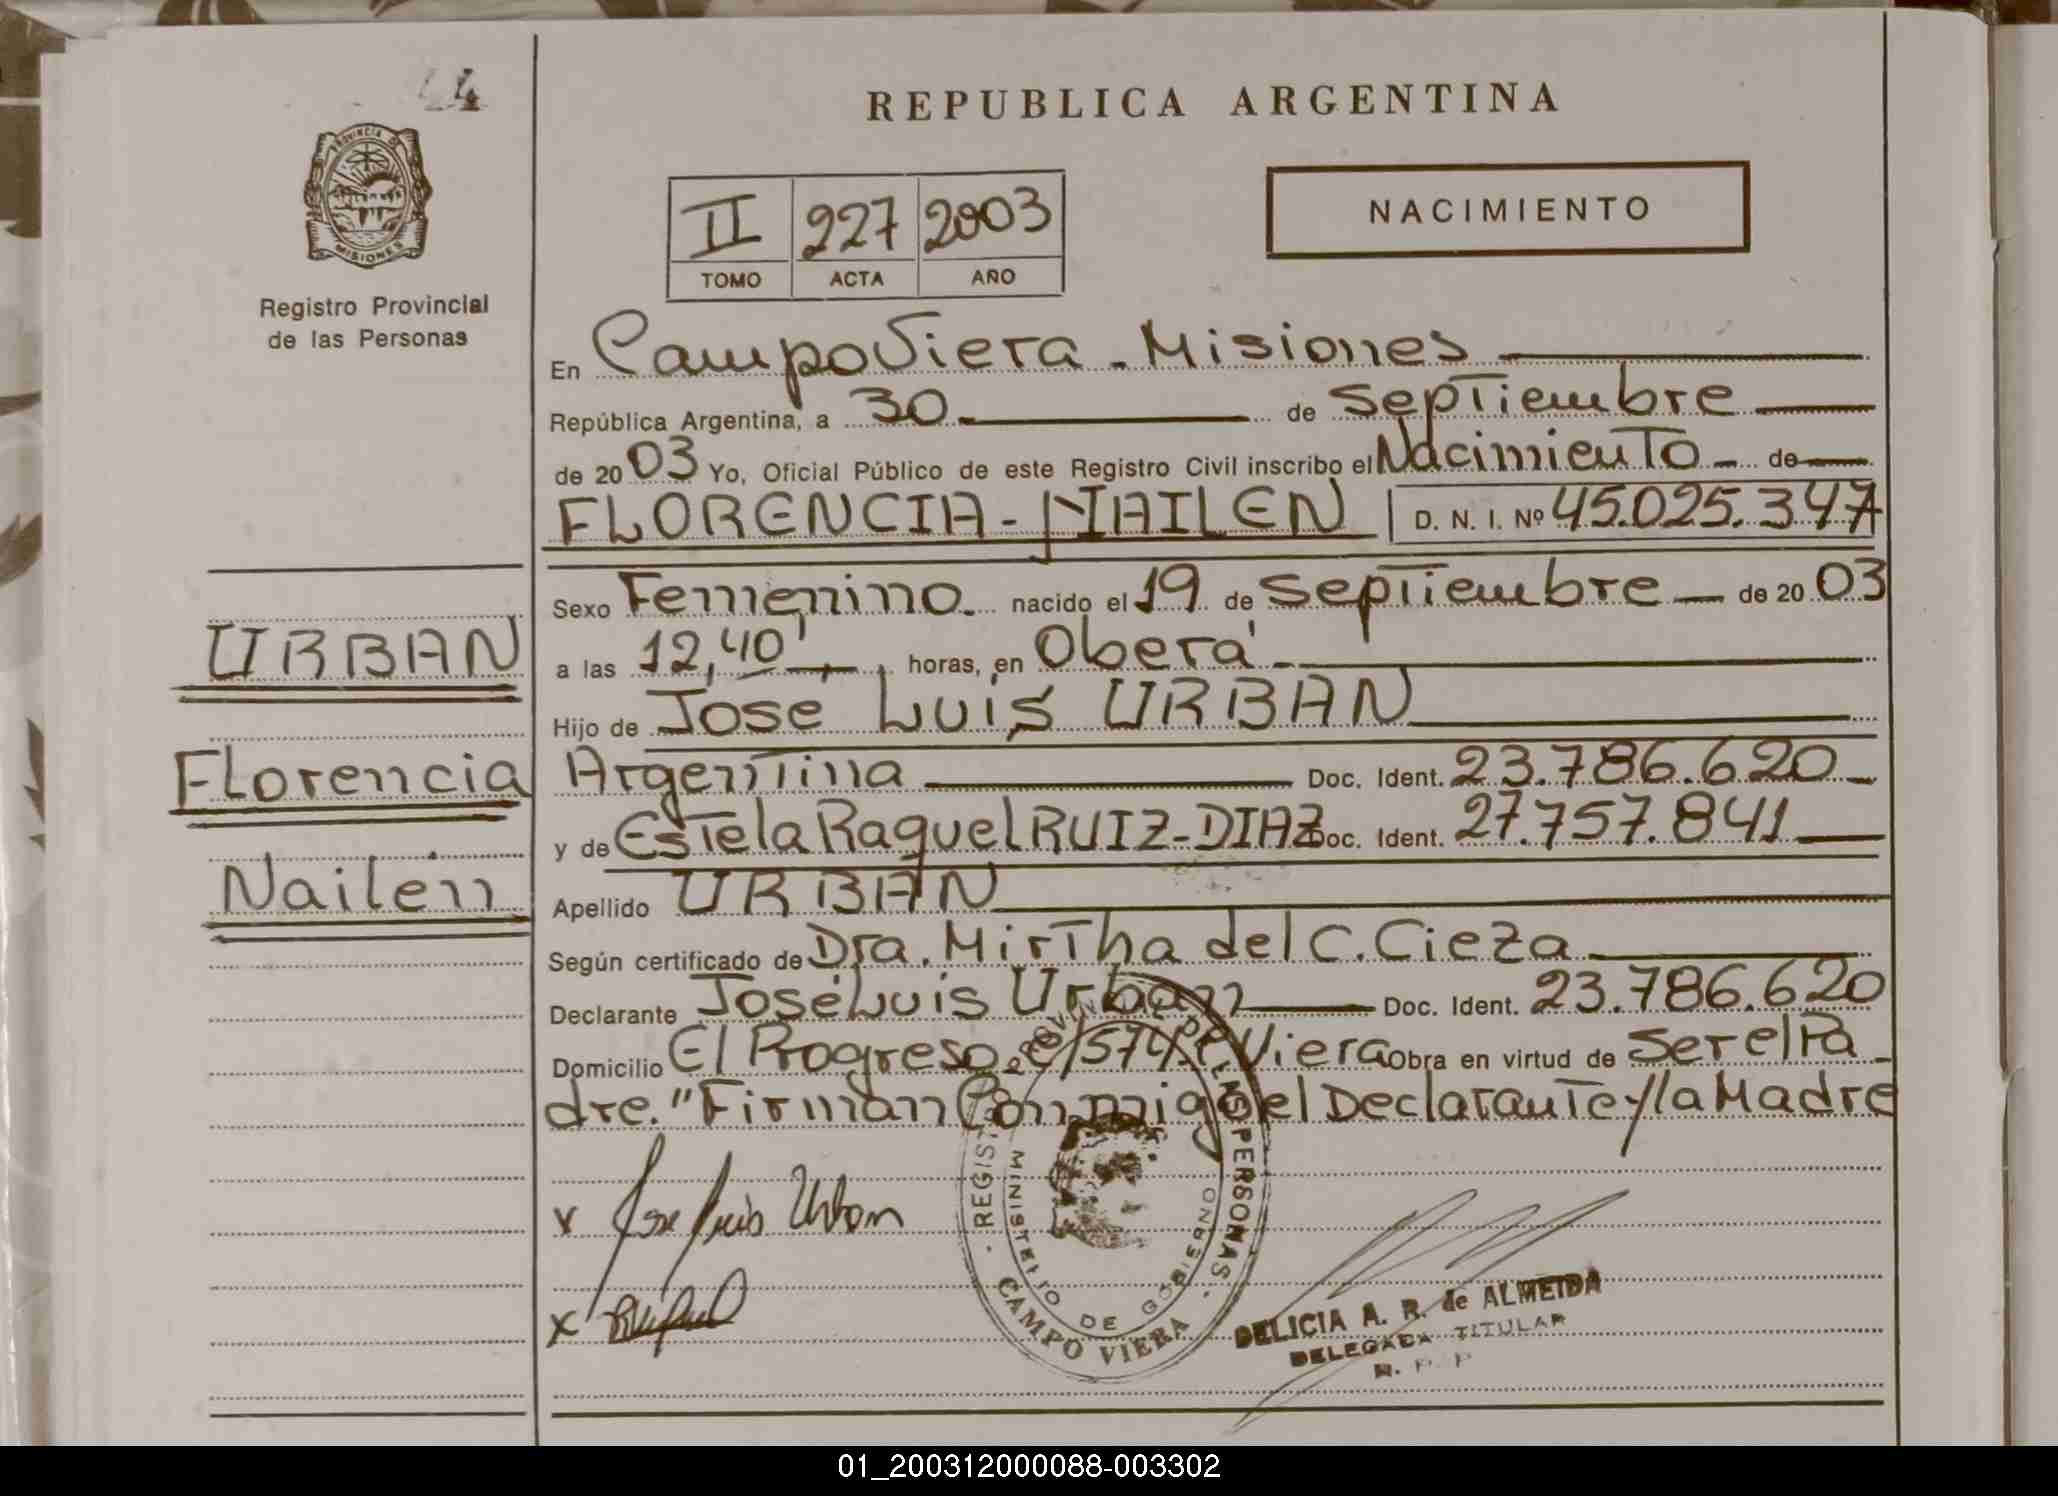 44
REPUBLICA ARGENTINA
PROVINCIA DE
MISIONES
Registro Provincial
de las Personas
II 227 2003
TOMO ACTA AÑO
NACIMIENTO
En Campo Viera - Misiones
República Argentina, a 30 de septiembre
de 2003 Yo, Oficial Público de este Registro Civil inscribo el Nacimiento de
FLORENCIA - NAILEN D. N. I. Nº 45.025.347
Sexo Femenino nacido el 19 de septiembre de 2003
URBAN
a las 12,40' horas, en Oberá
Hijo de José Luis URBAN
Florencia
Argentina Doc. Ident. 23.786.620
y de Estela Raquel RUIZ-DIAZ Doc. Ident. 27.757.841
Nailen
Apellido URBAN
Según certificado de Dra. Mirtha del C. Cieza
Declarante José Luis Urban Doc. Ident. 23.786.620
Domicilio El Progreso Viera Obra en virtud de ser el Pa
dre." Firman Conmigo el Declarante y la Madre
x Jose Luis Urban
x
REGISTRO PROVINCIAL DE LAS PERSONAS
MINISTERIO DE GOBIERNO
CAMPO VIERA
DELICIA A. R. de ALMEIDA
DELEGADA TITULAR
R. P. P.
01_200312000088-003302